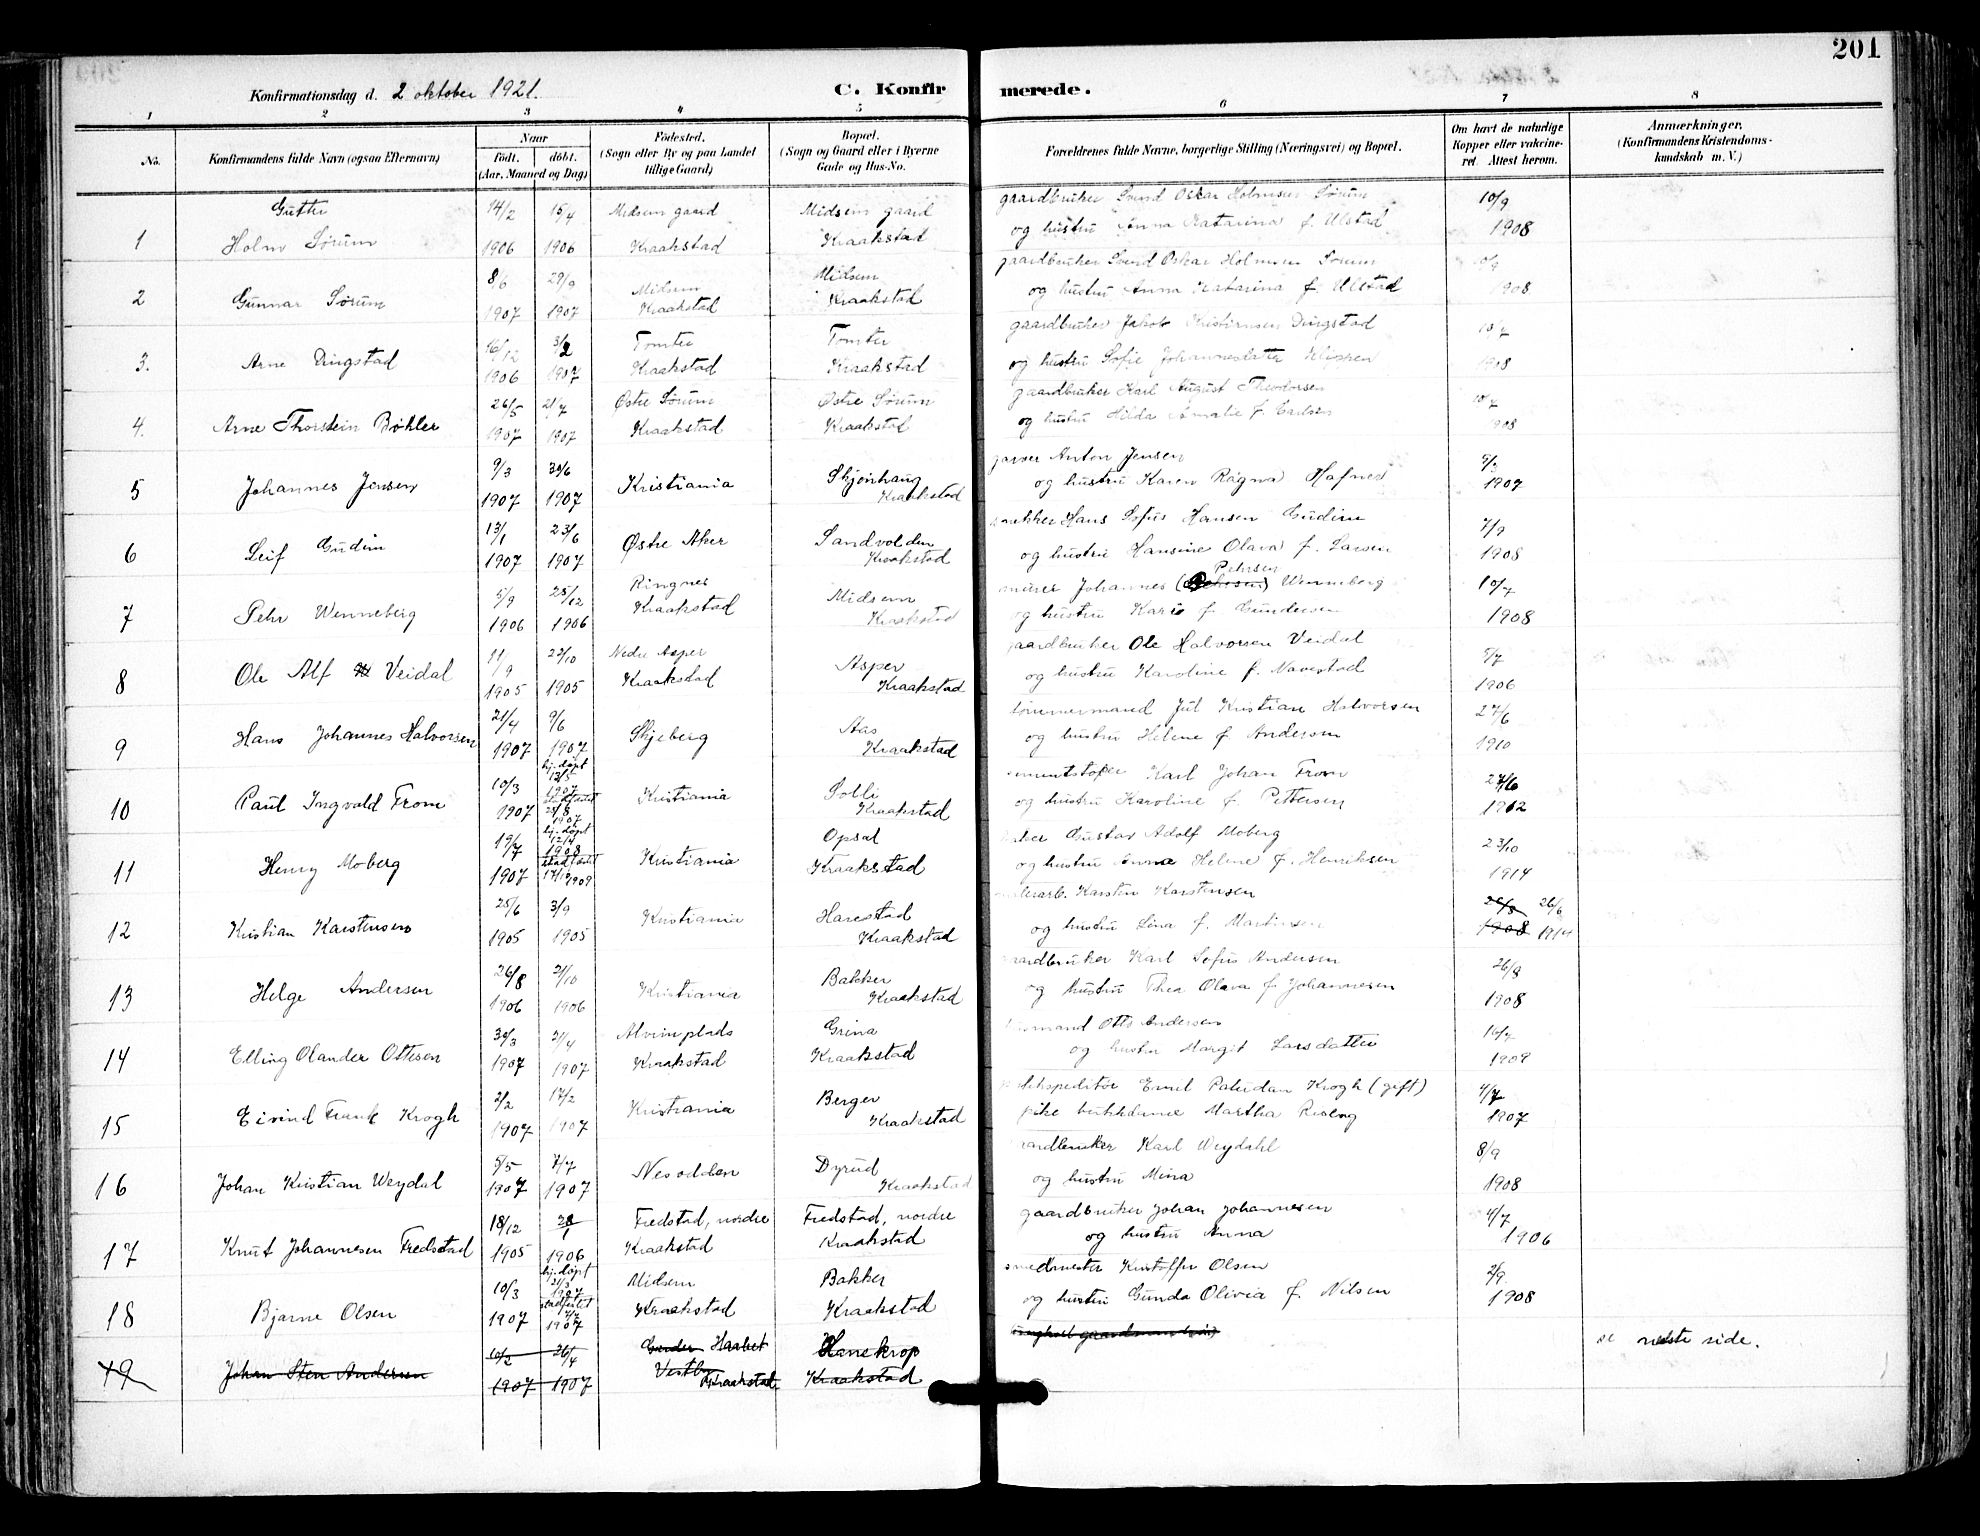 201
Konfirmationsdag d. 2 oktober 1921. C. Konfirmerede.
1 2 3 4 5 6 7 8
No. Konfirmandens fulde Navn (ogsaa Efternavn) Naar født. døbt. (Aar, Maaned og Dag) Fødested. (Sogn eller By og paa Landet tillige Gaard) Bopæl. (Sogn og Gaard eller i Byerne Gade og Hus-No. Forældrenes fulde Navne, borgerlige Stilling (Næringsvei) og Bopæl. Om havt de naturlige Kopper eller vaccineret. Attest herom. Anmærkninger. (Konfirmandens Kristendomskundskab m. V.)
Guthe 14/2 15/4 Midsem gaard Midsem gaard gaardbruker Svend Oskar Holmsen Sørum 10/9
1 Holm Sørum 1906 1906 Kraakstad Kraakstad og hustru Anna Katarina f. Ulstad 1908
8/6 29/9 Midsem Midsem gaardbruker Svend Oskar Holmsen Sørum 10/9
2 Gunnar Sørum 1907 1907 Kraakstad Kraakstad og hustru Anna Katarina f. Ulstad 1908
16/12 3/2 Tomter Tomter gaardbruker Jakob Kristiansen Dingstad 10/7
3. Arne Dingstad 1906 1907 Kraakstad Kraakstad og hustru Sofie Johannesdatter Klippen 1908
26/5 21/7 Østre Sørum Østre Sørum gaardbruker Karl August Theodorsen 10/7
4. Arne Thorstein Bøhler 1907 1907 Kraakstad Kraakstad og hustru Hilda Amalie f. Carlsen 1908
9/3 30/6 Kristiania Skjønhaug Anton Jensen
5 Johannes Jensen 1907 1907 Kraakstad og hustru Karen Ragna Hafnes 1907
13/1 23/6 Østre Aker Sandvolden snekker Hans Sofus Hansen Gudim 7/9
6 Leif Gudim 1907 1907 Kraakstad og hustru Hansine Olava f. Larsen 1908
5/9 25/12 Ringnes Midsem murer Johannes Pehrsen Wenneberg 10/7
7 Pehr Wenneberg 1906 1906 Kraakstad Kraakstad og hustru Karie f. Gundersen 1908
11/9 22/10 Nedre Asper Asper gaardbruker Ole Halvorsen Veidal 5/7
8 Ole Alf Veidal 1905 1905 Kraakstad Kraakstad og hustru Karoline f. Navestad 1906
21/4 9/6 Skjeberg Aas tømmermand Jul Kristian Halvorsen 27/6
9 Hans Johannes Halvorsen 1907 1907 Kraakstad og hustru Helene f. Andersen 1910
10/3 hj. døpt 13/5 1907 Kristiania Solli cementstøper Karl Johan From 27/6
10 Paul Ingvald From 1907 stadfæstet 25/8 1907 Kraakstad og hustru Karoline f. Pettersen 1912
19/7 hj. døpt 12/4 1908 Kristiania Opsal Gustav Adolf Moberg 23/10
11 Henry Moberg 1907 stadfæstet 17/10 1909 Kraakstad og hustru Anna Helene f. Henriksen 1914
25/6 3/9 Kristiania Harestad Karsten Karstensen 26/6
12 Kristian Karstensen 1905 1905 Kraakstad og hustru Lina f. Martinsen 1908 1914
26/8 21/10 Kristiania Bakker gaardbruker Karl Sofus Andersen 26/8
13 Helge Andersen 1906 1906 Kraakstad og hustru Thea Olava f. Johannesen 1908
30/3 21/4 Alvimplads Grina Otto Andersen 10/7
14 Elling Olander Ottesen 1907 1907 Kraakstad Kraakstad og hustru Margit Larsdatter 1909
2/2 17/2 Kristiania Berger Emil Paludan Krogh (gift) 4/7
15 Eivind Frank Krogh 1907 1907 Kraakstad pike Martha Riseng 1907
5/5 7/7 Nesodden Dyrud gaardbruker Karl Weydahl 8/9
16 Johan Kristian Weydal 1907 1907 Kraakstad og hustru Mina 1908
18/12 28/1 Fredstad, nordre Fredstad, nordre gaardbruker Johan Johannesen 4/7
17 Knut Johannesen Fredstad 1905 1906 Kraakstad Kraakstad og hustru Anna 1906
10/3 hj. døpt 21/3 1907 Midsem Bakker smedmester Kristoffer Olsen 2/9
18 Bjarne Olsen 1907 stadfæstet 7/7 1907 Kraakstad Kraakstad og hustru Gunda Olivia f. Nilsen 1908
10/2 26/4 Haabet Hanekrop se neste side.
19 Johan Sten Andersen 1907 1907 Vestby Kraakstad Kraakstad